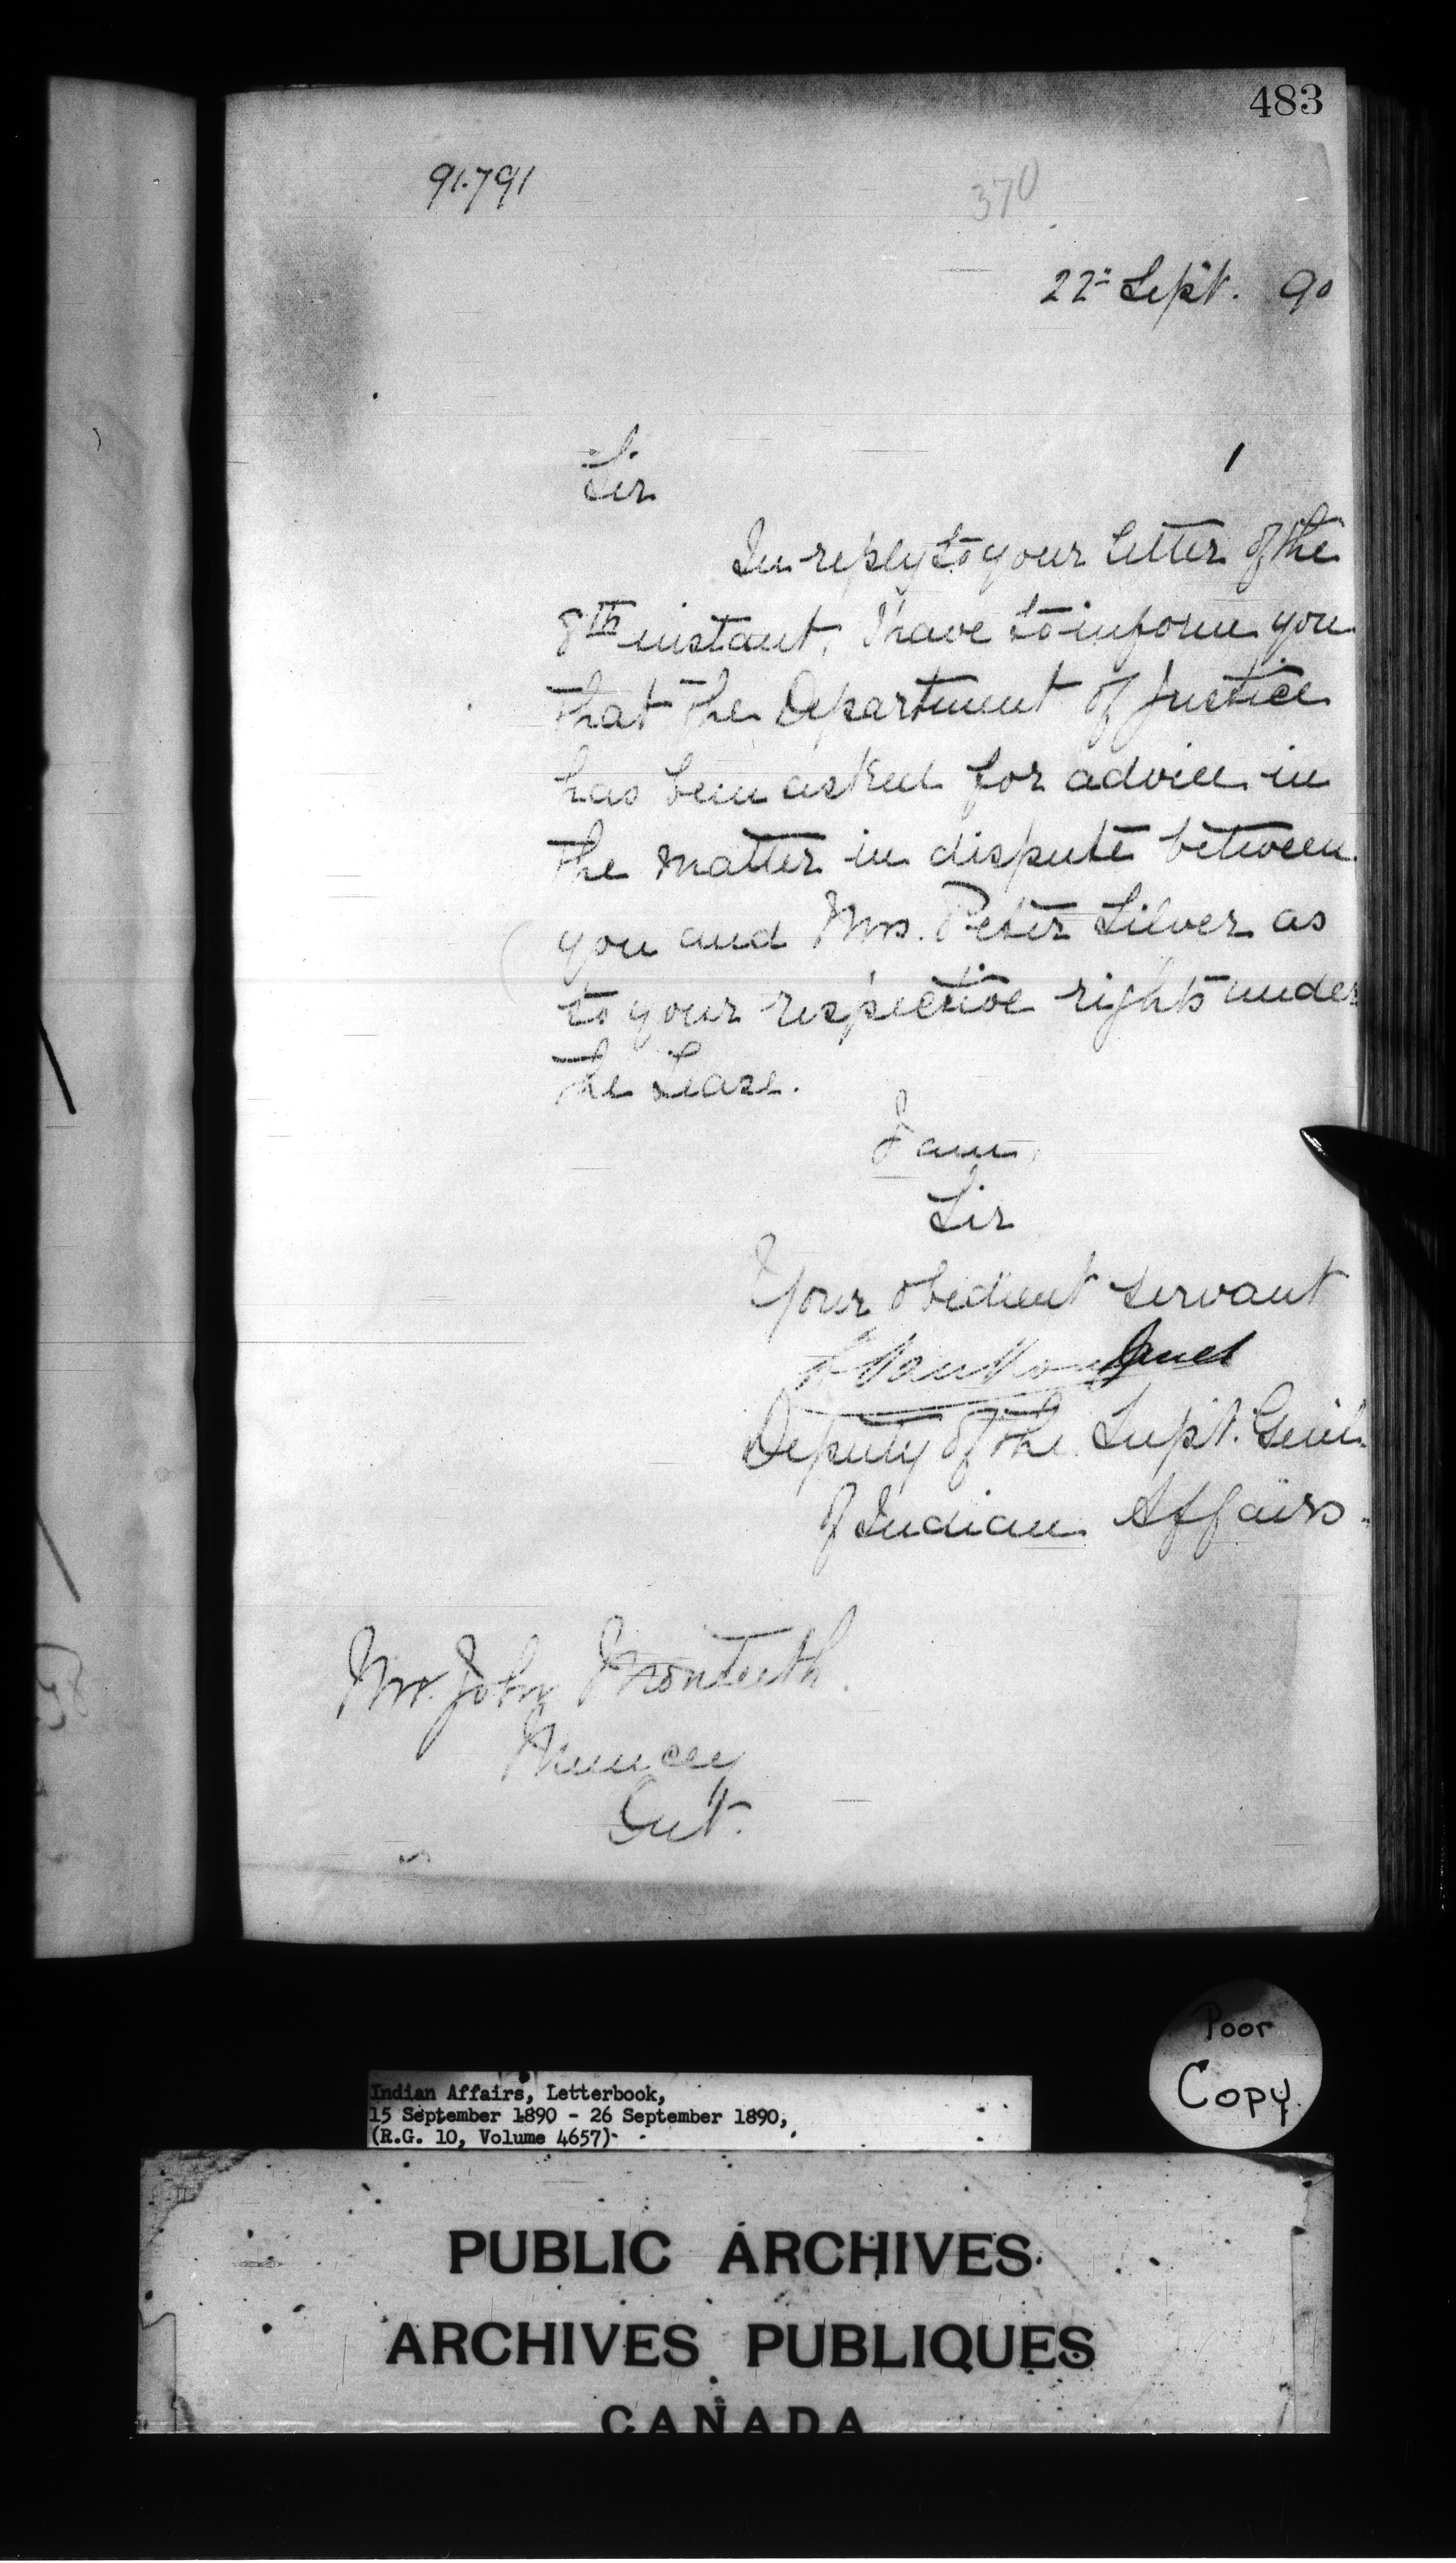 483
91.791
370
22nd Sept. 90
Sir
In reply to your letter of the
8th instant, I have to inform you
that the Department of Justice
has been asked for advice in
the matter in dispute between
you and Mrs. Peter Silver as
to your respective rights under
the Lease.
I am,
Sir
Your obedient servant
L Vankoughnet
Deputy of the Supt. Genl.
of Indian Affairs.
Mr. John Monteith.
Muncey
Ont.
Poor
Copy
Indian Affairs, Letterbook,
15 September 1890 - 26 September 1890,
(R.G. 10, Volume 4657)
PUBLIC ARCHIVES
ARCHIVES PUBLIQUES
CANADA